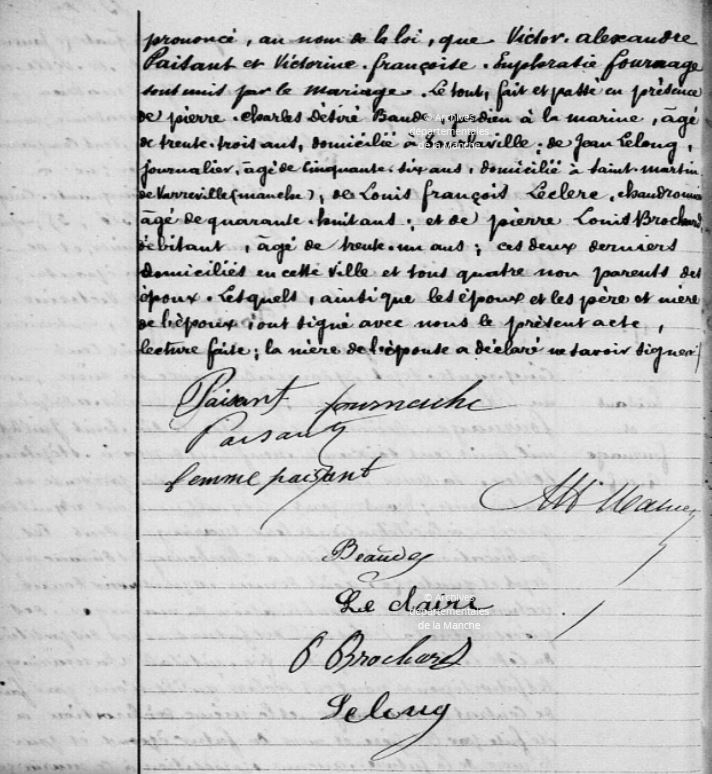 prononcé, au nom de la loi, que Victor. alexandre
Paisant et Victorine. françoise. Euphrasie fournage
sont unis par le mariage. Le tout, fait et passé en présence
de pierre. charles Désiré Baude, gardien à la marine, âgé
de trente. trois ans, domicilié à ; de Jean Lelong,
journalier, âgé de cinquante. six ans, domicilié à saint. martin
de Varreville (manche), de Louis françois Leclerc, chaudronnier
âgé de quarante. huit ans; et de pierre Louis Brochard
débitant, âgé de trente. un ans; ces deux derniers
domiciliés en cette ville et tous quatre non parents des
époux. Lesquels, ainsi que les époux et les père et mère
de l'époux, ont signé avec nous le présent acte,
lecture faite; la mère de l'épouse a déclaré ne savoir signer
Paisant
Paisant
femme paisant
Beaudes
Le claire
P Brochard
Lelong
© Archives
départementales
de la Manche
© Archives
départementales
de la Manche